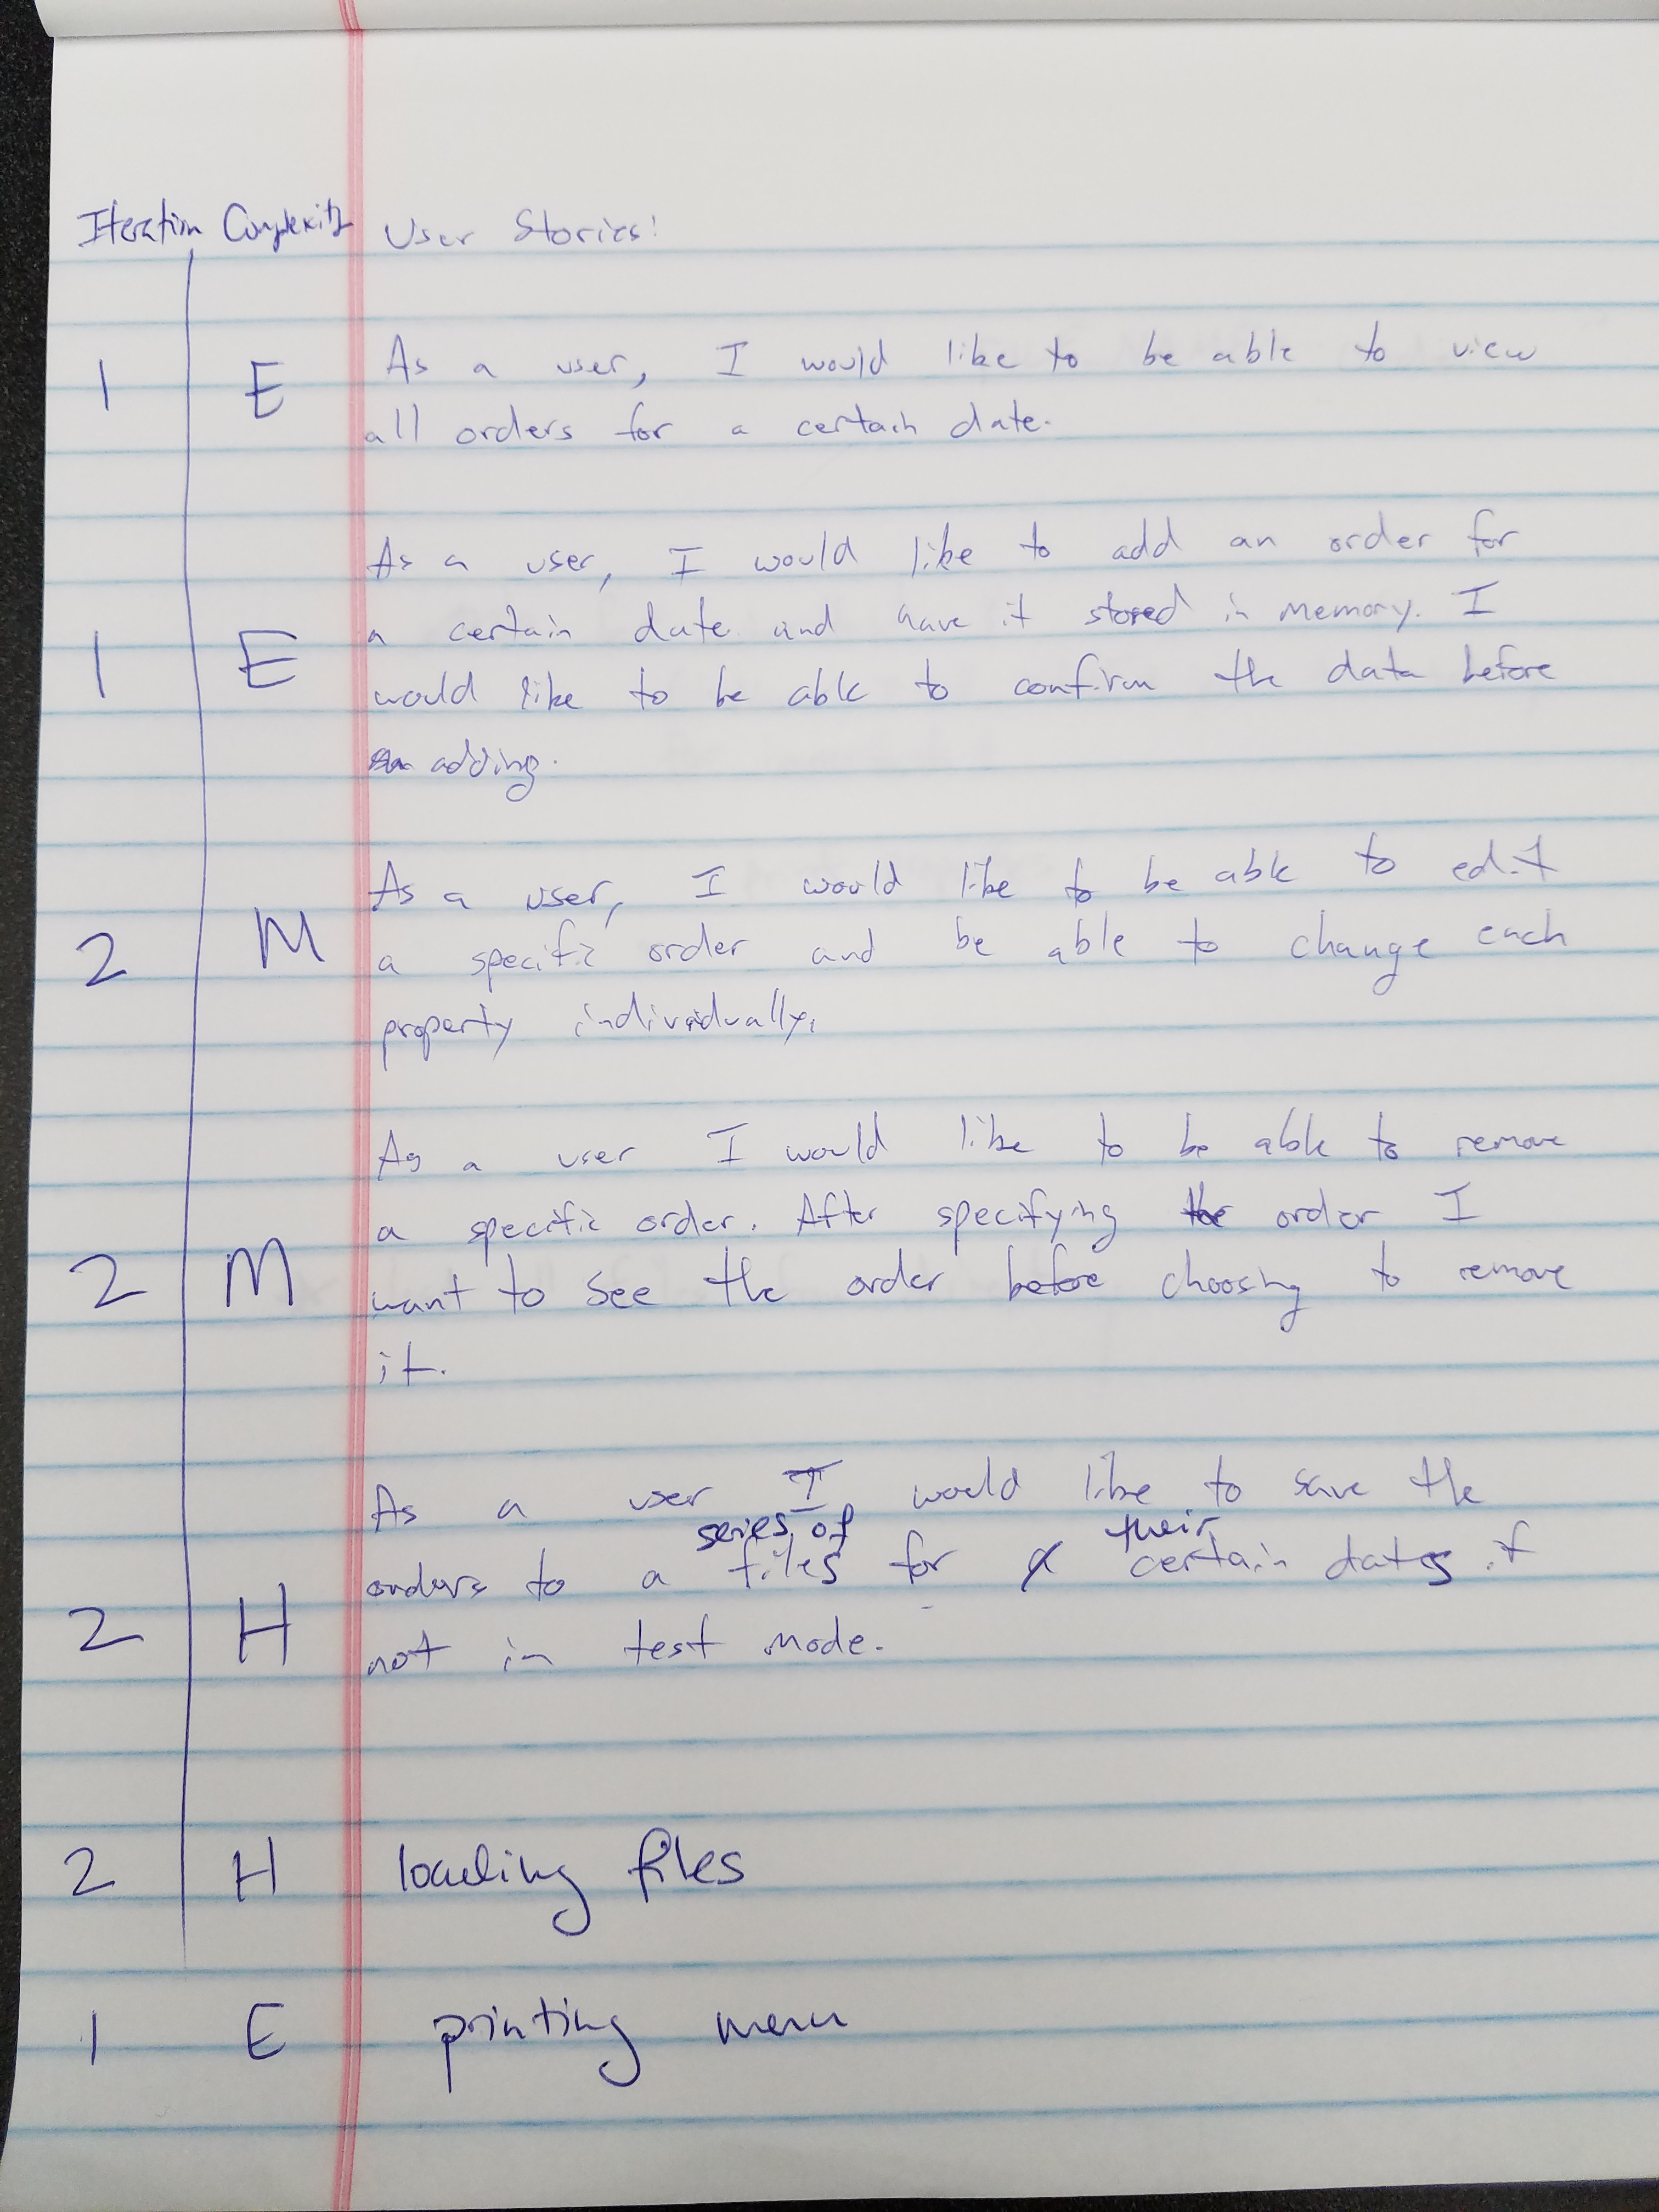 Iteration Complexity User Stories:
As a user, I would like to be able to view
1 E
all orders for a certain date.
As a user, I would like to add an order for
a certain date and have it stored in memory. I
1 E
would like to be able to confirm the data before
adding.
As a user, I would like to be able to edit
2 M
a specific order and be able to change each
property individually.
As a user I would like to be able to remove
a specific order. After specifying the order I
2 M
want to see the order before choosing to remove
it.
As a user I would like to save the
series of their
orders to a files for certain dates if
2 H
not in test mode.
2 H loading files
1 E printing menu